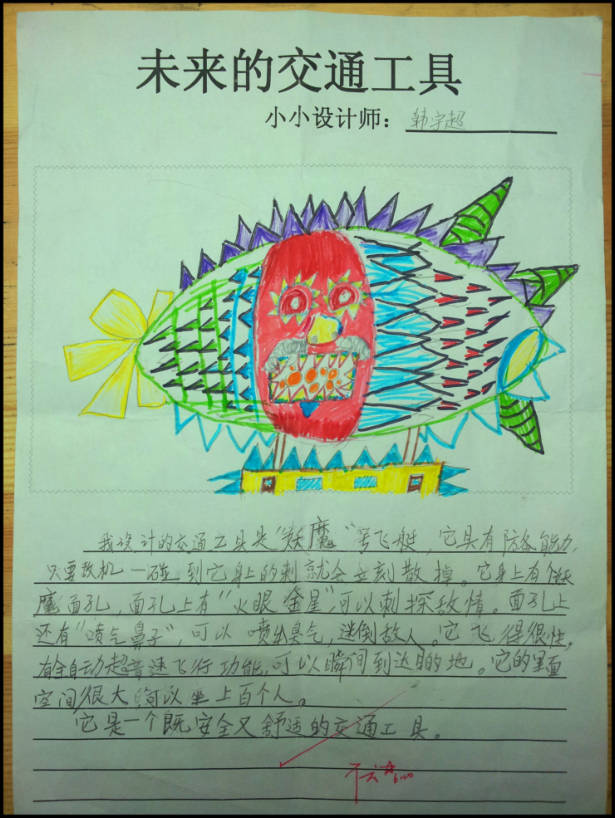 未来的交通工具
小小设计师：韩宇超
我设计的交通工具是“妖魔”号飞艇，它具有防备能力，
只要敌机一碰到它身上的刺就会立刻散掉。它身上有个妖
魔面孔，面孔上有“火眼金星”可以刺探敌情。面孔上
还有“喷气鼻子”，可以喷出臭气，迷倒敌人。它飞得很快，
有全自动超音速飞行功能，可以瞬间到达目的地。它的里面
空间很大，可以坐上百个人。
它是一个既安全又舒适的交通工具。